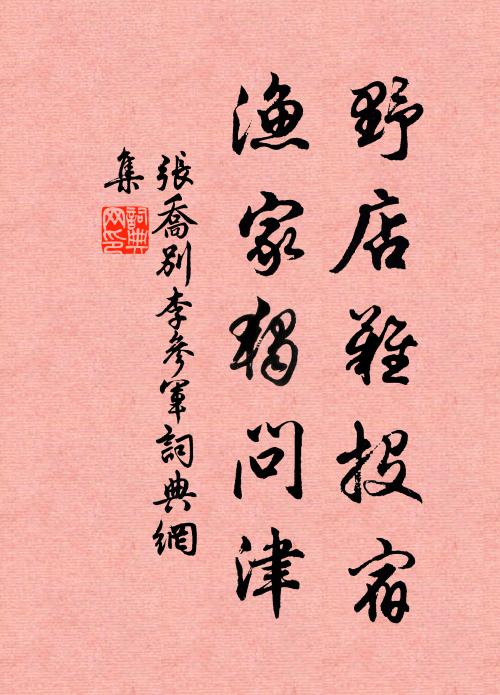 野店難投宿
漁家獨問津
張喬別李參軍詞典網
集
詞典
网印